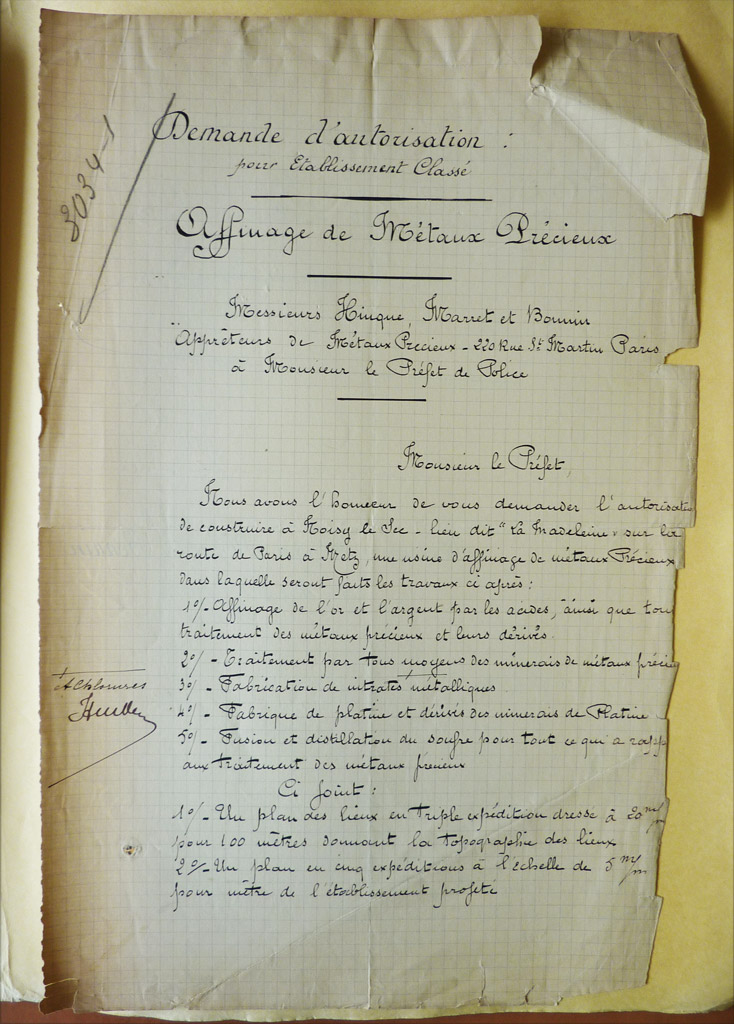 3034-1
Demande d'autorisation :
pour Etablissement Classé
Affinage de Métaux Précieux
Messieurs Hinque, Marret et Bonnin
Apprêteurs de Métaux Precieux - 220 Rue St Martin Paris
à Monsieur le Préfet de Police
Monsieur le Préfet,
Nous avons l'honneur de vous demander l'autorisati
de construire à Noisy le Sec - lieu dit "La Madeleine" sur la
route de Paris à Metz, une usine d'affinage de métaux Précieux
dans laquelle seront faits les travaux ci après :
1°/- Affinage de l'or et l'argent par les acides, ainsi que tou
traitement des métaux précieux et leurs dérivés.
2°/- Traitement par tous moyens des minerais de métaux préci
3°/- Fabrication de nitrates métalliques
et chlorures
4°/- Fabrique de platine et dérivés des minerais de Platine
5°/- Fusion et distillation du soufre pour tout ce qui a rapp
aux traitement des métaux précieux
Ci Joint :
1°/- Un plan des lieux en triple expédition dressé à 20 m/m
pour 100 mètres donnant la topographie des lieux
2°/- Un plan en cinq expéditions à l'échelle de 5 m/m
pour mètre de l'établissement projeté